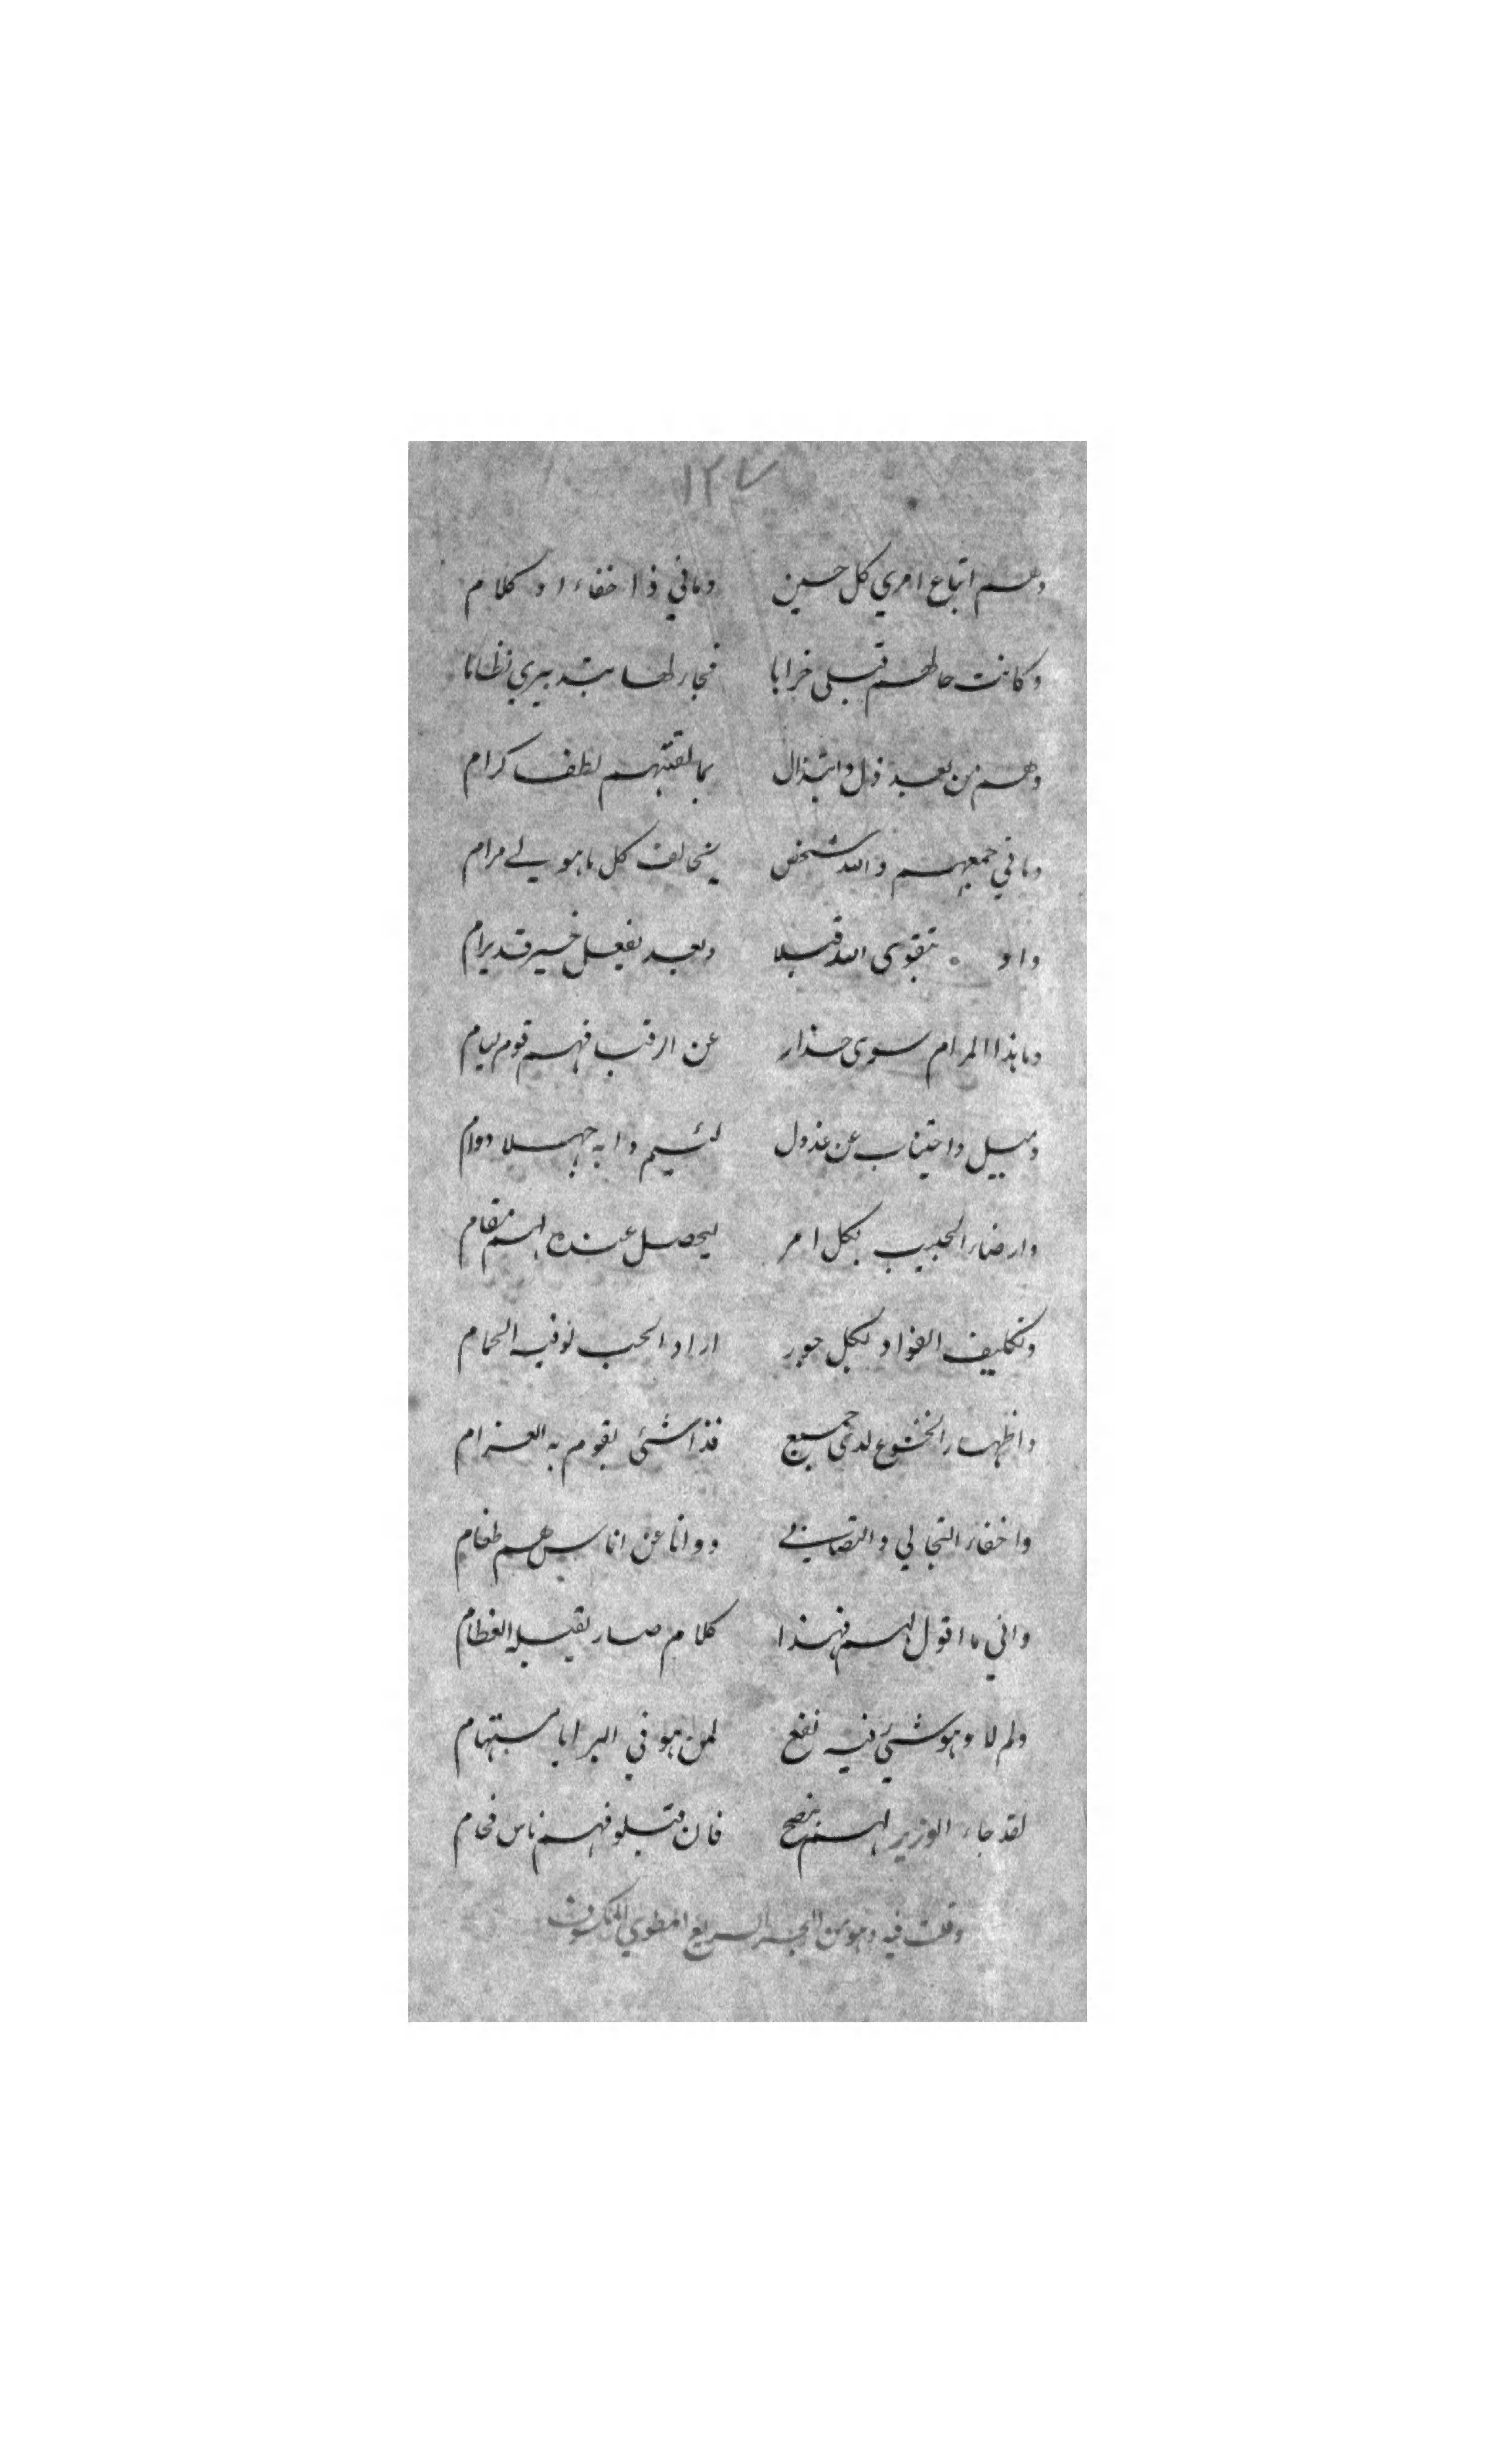 ١٢٧
وهم اتباع امري كل حين وما في ذا خفاء او كلام
وكانت حالهم قبلي خرابا فجار لها بتدبيري نظاما
وهم من بعد ذل وابتذال بما لقنتهم لطف كرام
وما في جمعهم والله شخص يخالف كل ما هو لي مرام
واو بتقوى الله قبلا وبعد بفعل خير قد يرام
وما هذا المرام سوى حذار عن الرقبا فهم قوم ليام
وميل واجتناب عن عذول لئيم دابه جهلا دوام
وارضاء الحبيب بكل امر ليحصل عنده لهم مقام
وتكليف الفواد بكل جور اراد الحب لو فيه الحمام
واظهار الخشوع لدى جميع فذا شئ يقوم به الغرام
واخفاء التجالي والتصابي ودوانا عن اناس هم طغام
واني ما اقول لهم فهذا كلام صار يقبله العظام
ولم لا وهو شئ فيه نفع لمن هو في البرايا مستهام
لقد جاء الوزير لهم بنصح فان قبلو فهم ناس فخام
وقلت فيه وهو من البحر السريع المطوي المكسوف